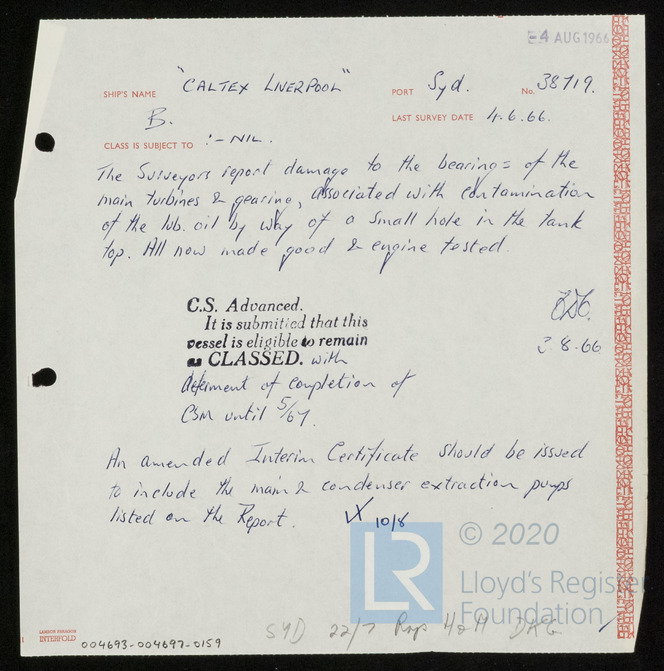 -4 AUG 1966
SHIP'S NAME "CALTEX LIVERPOOL" PORT Syd. No. 38719.
B. LAST SURVEY DATE 4.6.66.
CLASS IS SUBJECT TO :- NIL.
The Surveyors report damage to the bearings of the
main turbines & gearing, associated with contamination
of the lub. oil by way of a small hole in the tank
top. All now made good & engine tested.
C.S. Advanced.
It is submitted that this
vessel is eligible to remain
as CLASSED. with
deferment of completion of
CSM until 5/67.
2.8.66
An amended Interim Certificate should be issued
to include the main & condenser extraction pumps
listed on the Report. 10/8
© 2020
LR Lloyd's Register
Foundation
LAMSON PARAGON
INTERFOLD
004693-004697-0159
SYD 22/7